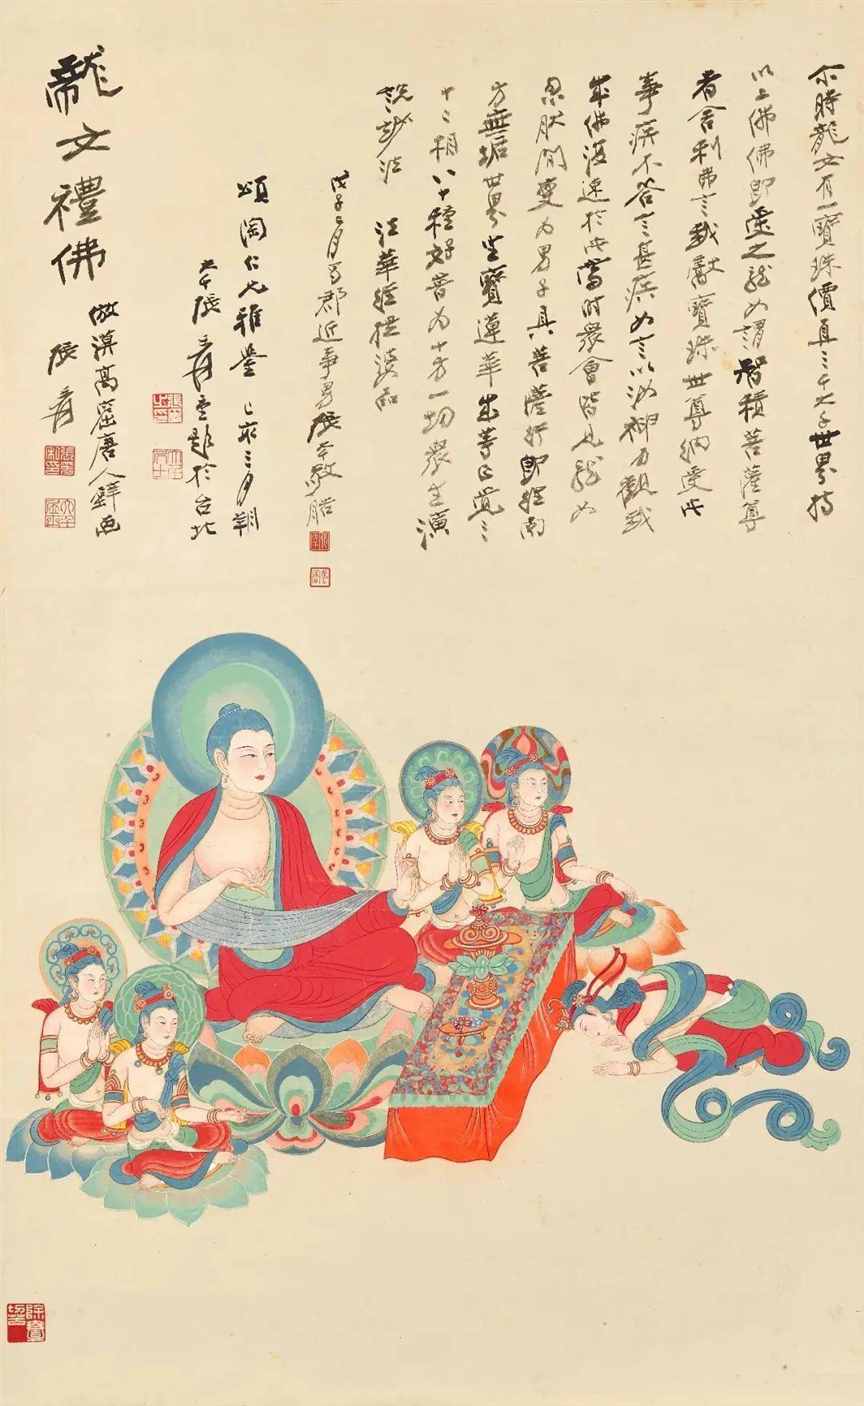 尒時龍女有一寶珠價直三千大千世界持
以上佛佛即受之龍女謂智積菩薩尊
者舍利弗言我獻寶珠世尊納受此
事疾不答言甚疾女言以汝神力觀我
成佛復速於此當時眾會皆見龍女
忽然間變為男子具菩薩行即往南
方無垢世界坐寶蓮華成等正覺三
十二相八十種好普為十方一切眾生演
說妙法 法華經提婆品
戊子二月蜀郡近事男張大千敬
頌陶仁兄雅鑒 己亥三月朔
大千張爰重題於台北
龍女禮佛
倣漠高窟唐人畫
張爰